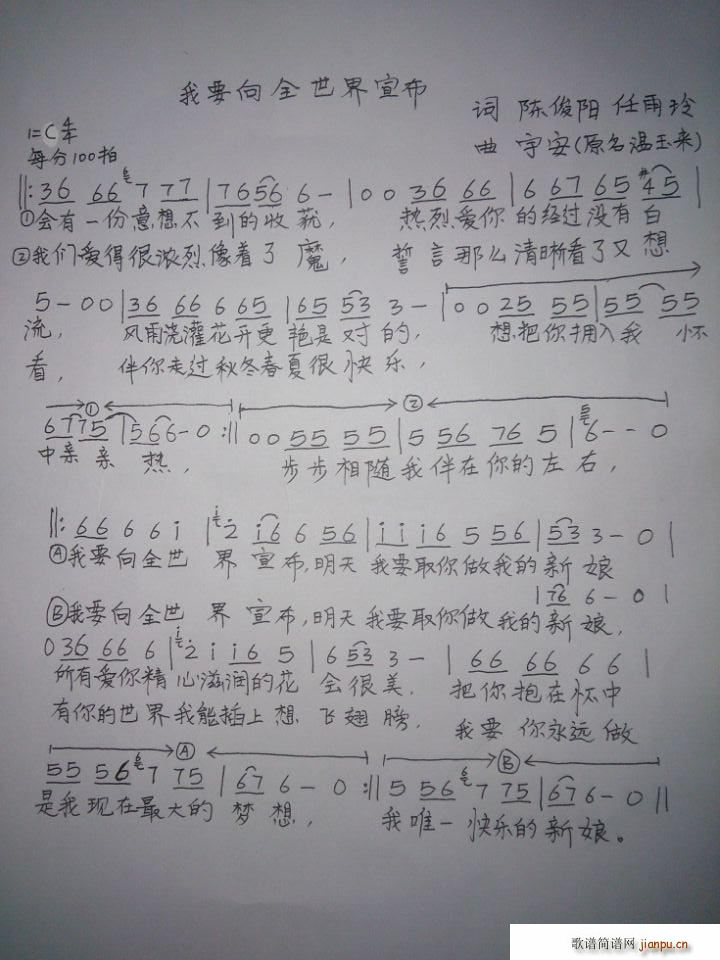 我要向全世界宣布
词 陈俊阳 任雨玲
1=C 4/4
每分100拍
曲 宇安(原名温玉来)
‖: 36 66 6 7 777 | 7656 6 - | 0 0 36 66 | 6 67 65 #45 |
①会有一份意想不到的收获, 热烈爱你的经过没有白
②我们爱得很浓烈像着了魔, 誓言那么清晰看了又想
5 - 0 0 | 36 66 6 65 | 65 53 3 - | 0 0 25 55 | 55 55
流, 风雨浇灌花开更艳是对的, 想把你拥入我 怀
看, 伴你走过秋冬春夏很快乐,
① ②
67 75 | 566 - 0 :‖ 0 0 55 55 | 5 56 76 5 | 5 6 - - 0
中亲亲 热, 步步相随我伴在你的左右,
‖: 66 6 6 i | i 2 i6 6 56 | i i i6 5 56 | 53 3 - 0 |
Ⓐ我要向全世 界 宣布,明天 我要取你做我的新娘
| 76 6 - 0 |
Ⓑ我要向全世 界 宣布,明天我要取你做我的新娘,
0 36 66 6 | i 2 i i6 5 | 6 53 3 - | 66 66 6 6 |
所有爱你精心滋润的花 会很美. 把你抱在怀中
有你的世界我能插上想飞翅膀. 我要 你永远做
Ⓐ Ⓑ
55 56 6 7 75 | 67 6 - 0 :‖ 5 56 6 7 75 | 67 6 - 0 ‖
是我现在最大的 梦想, 我唯一 快乐的新娘。
歌谱简谱网 jianpu.cn